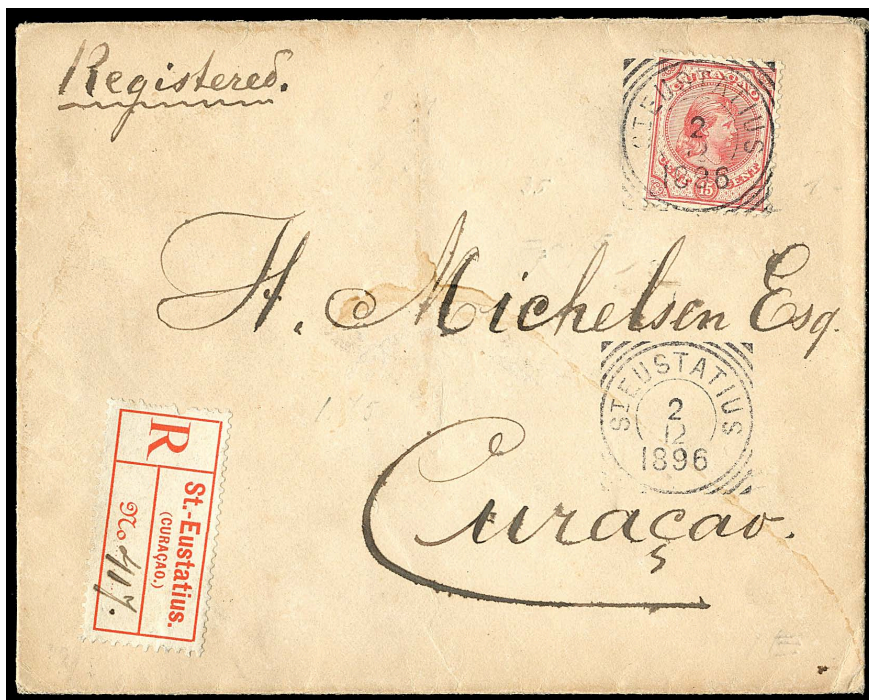 Registered.
CURAÇAO
15 CENT
ST EUSTATIUS
2
1896
H. Michelsen Esq.
ST EUSTATIUS
2
12
1896
Curaçao.
R
St.-Eustatius.
(CURAÇAO.)
No 417.